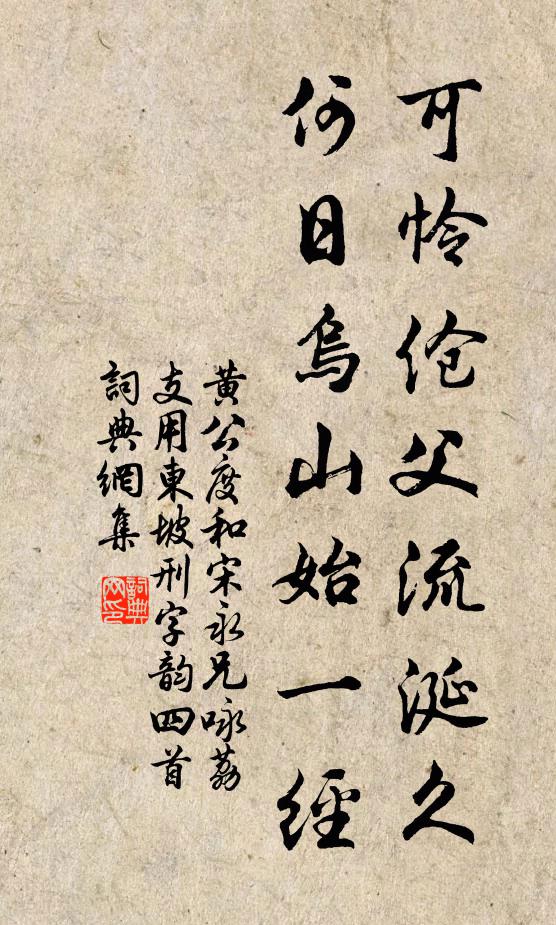 可怜伧父流涎久
何日烏山始一經
黃公度和宋永兄咏荔
支用東坡刑字韵四首
詞典網集
詞典网印